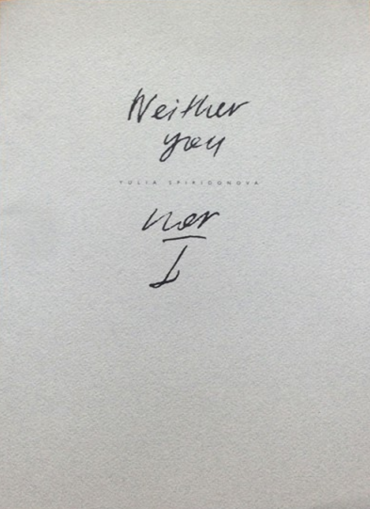 Neither
you
YULIA SPIRIDONOVA
nor
I